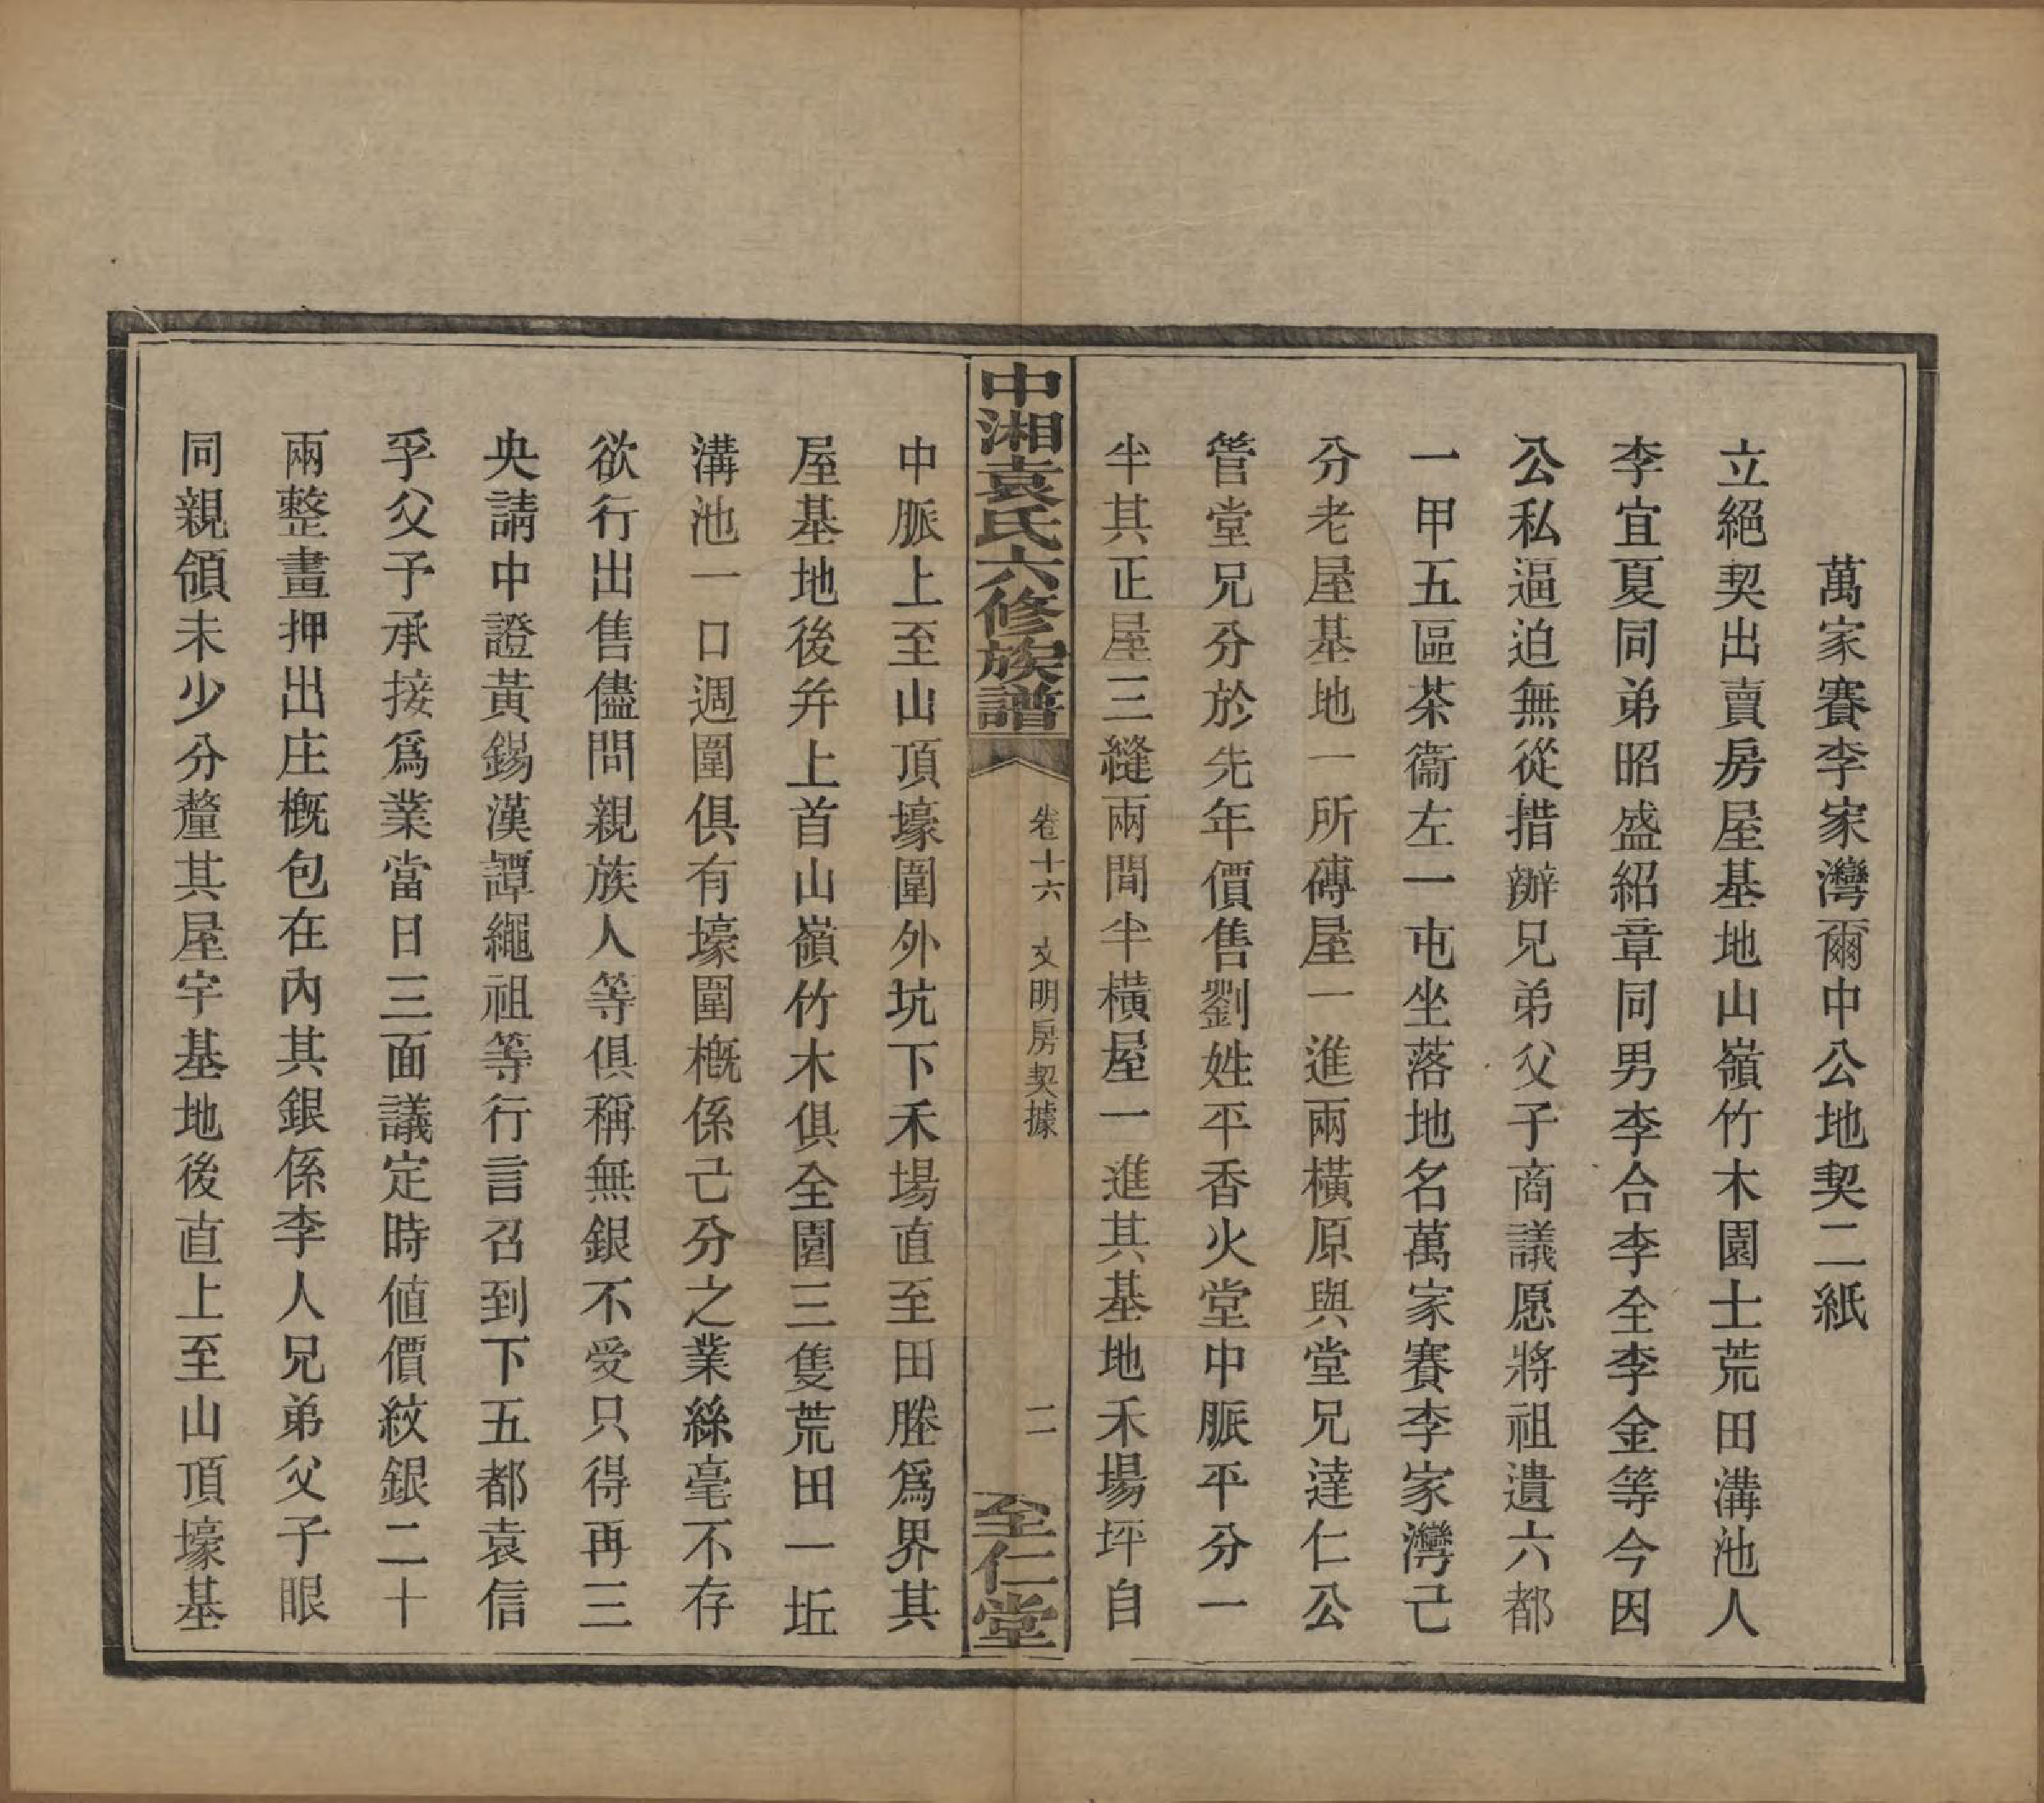 萬家賽李家灣爾中公地契二紙
立絕契出賣房屋基地山嶺竹木園土荒田溝池人
李宜夏同弟昭盛紹章同男李合李全李金等今因
公私逼迫無從措辦兄弟父子商議愿將祖遺六都
一甲五區茶衞左一屯坐落地名萬家賽李家灣己
分老屋基地一所磚屋一進兩橫原與堂兄達仁公
管堂兄分於先年價售劉姓平香火堂中脈平分一
半其正屋三縫兩間半橫屋一進其基地禾場坪自
中湘袁氏六修族譜
卷十六 文明房契據
二
至仁堂
中脈上至山頂壕圍外坑下禾場直至田塍爲界其
屋基地後幷上首山嶺竹木俱全園三隻荒田一坵
溝池一口週圍俱有壕圍槪係己分之業絲毫不存
欲行出售儘問親族人等俱稱無銀不受只得再三
央請中證黃錫漢譚繩祖等行言召到下五都袁信
孚父子承接爲業當日三面議定時値價紋銀二十
兩整畫押出庄槪包在內其銀係李人兄弟父子眼
同親領未少分釐其屋宇基地後直上至山頂壕基